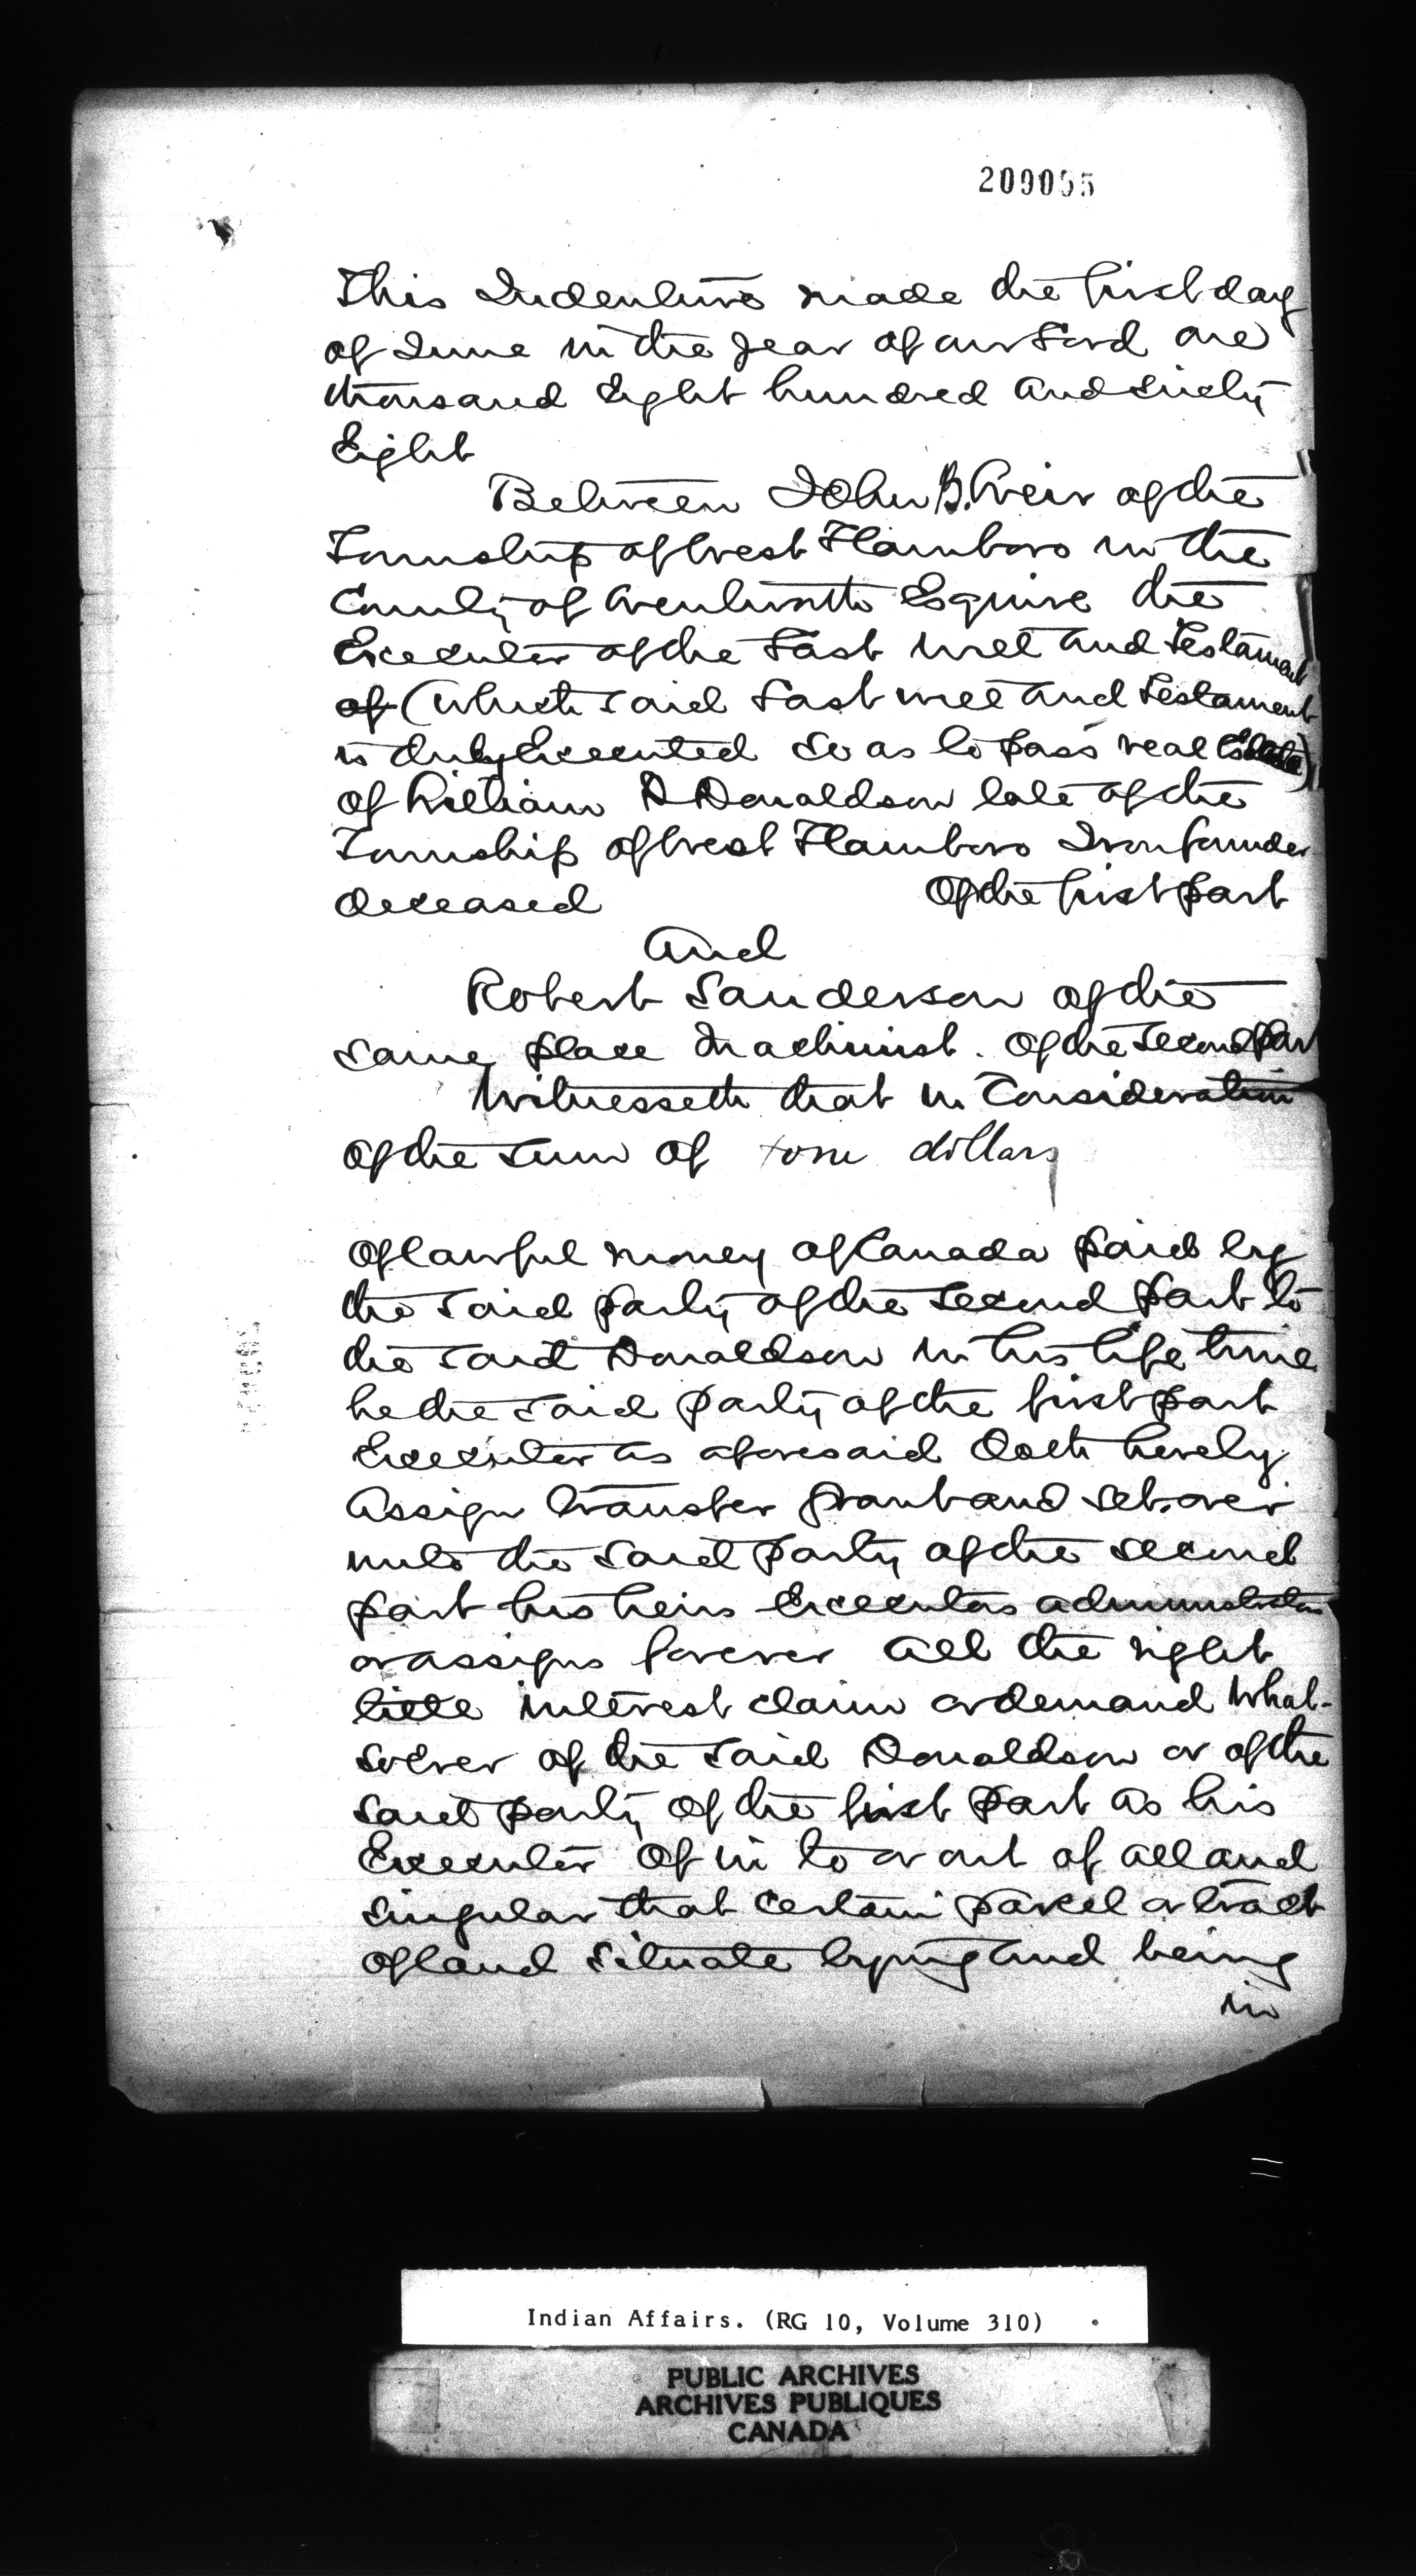 209055
This Indenture made the first day
of June in the year of our Lord one
thousand Eight hundred and sixty
Eight
Between John B. Weir of the
Township of West Flamboro in the
County of Wentworth Esquire the
Executor of the Last will and Testament
of (which said Last will and Testament
is duly Executed so as to pass real Estate)
of William D Donaldson late of the
Township of West Flamboro Iron founder
deceased Of the first part
And
Robert Sanderson of the
same place Machinist. Of the second Part
Witnesseth that in Consideration
of the sum of dollars
Of lawful money of Canada paid by
the said party of the second part to
the said Donaldson in his life time
he the said party of the first part
Executor as aforesaid Doth hereby
Assign transfer grant and set over
unto the said party of the second
part his heirs Executors administrators
or assigns forever all the right
title interest claim or demand what-
soever of the said Donaldson or of the
said party of the first part as his
Executor Of in to or out of all and
singular that certain parcel or tract
of land situate lying and being
in
Indian Affairs. (RG 10, Volume 310)
PUBLIC ARCHIVES
ARCHIVES PUBLIQUES
CANADA